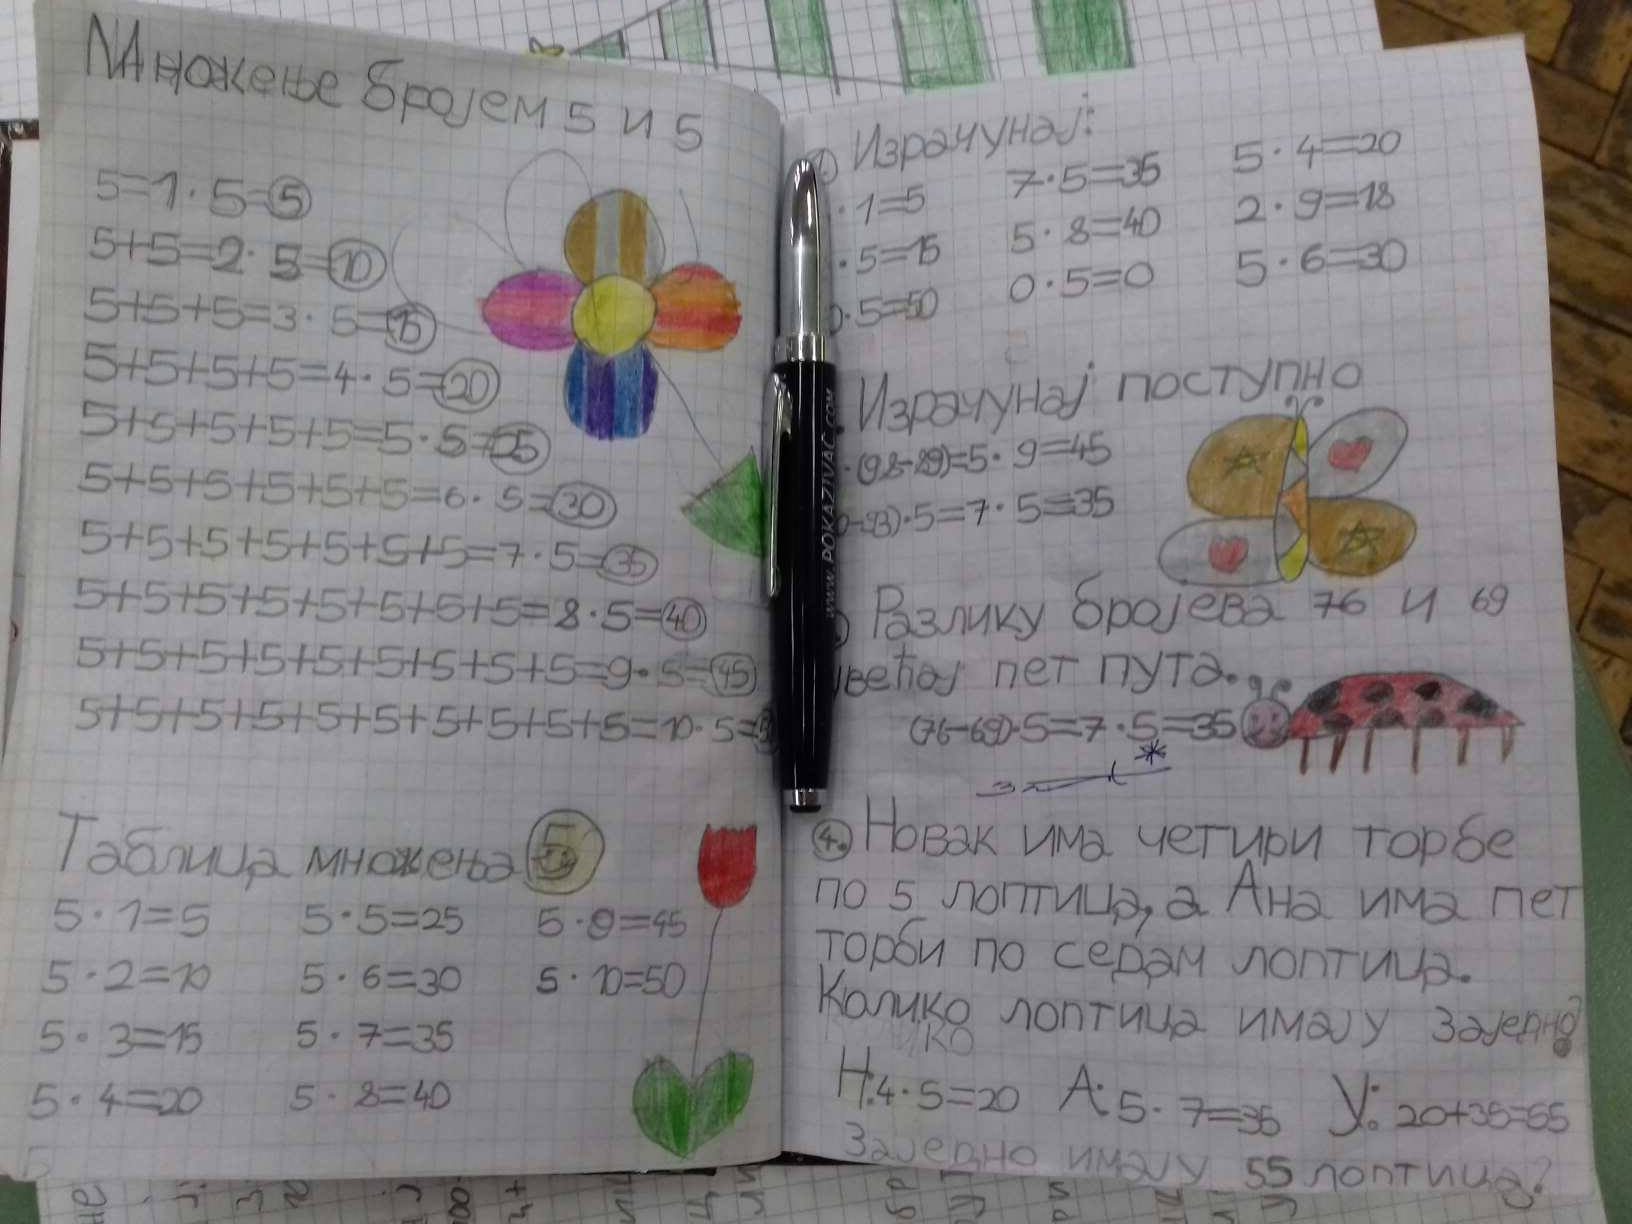 Множење бројем 5 и 5
5=1·5=5
5+5=2·5=10
5+5+5=3·5=15
5+5+5+5=4·5=20
5+5+5+5+5=5·5=25
5+5+5+5+5+5=6·5=30
5+5+5+5+5+5+5=7·5=35
5+5+5+5+5+5+5+5=8·5=40
5+5+5+5+5+5+5+5+5=9·5=45
5+5+5+5+5+5+5+5+5+5=10·5=
Таблица множења 5
5·1=5 5·5=25 5·9=45
5·2=10 5·6=30 5·10=50
5·3=15 5·7=35
5·4=20 5·8=40
Израчунај:
·1=5 7·5=35 5·4=20
·5=15 5·8=40 2·9=18
0·5=50 0·5=0 5·6=30
Израчунај поступно
·(98-89)=5·9=45
-93)·5=7·5=35
Разлику бројева 76 и 69
увећај пет пута.
(76-69)·5=7·5=35
4. Новак има четири торбе
по 5 лоптица, а Ана има пет
торби по седам лоптица.
Колико лоптица имају заједно?
Н:4·5=20 А:5·7=35 У:20+35=55
Заједно имају 55 лоптица?
www.POKAZIVAC.COM